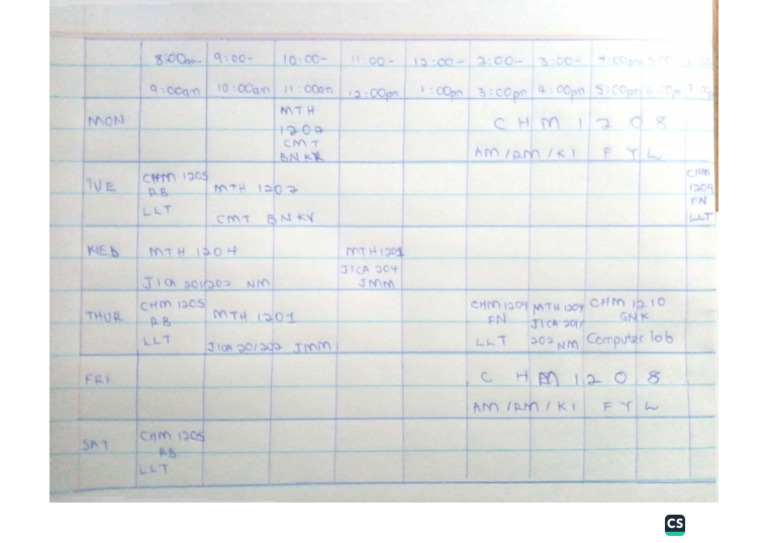 8:00am- 9:00- 10:00- 11:00- 12:00- 2:00- 3:00- 4:00pm
9:00am 10:00am 11:00am 12:00pm 1:00pm 3:00pm 4:00pm 5:00pm
MON
MTH
1202
CMT
BNKY
CHM 1208
AM/RM/KI FYL
TUE
CHM 1205
RB
LLT
MTH 1202
CMT BNKY
CHM
1209
FN
LLT
WED
MTH 1204
JICA 201/202 NM
MTH 1201
JICA 204
JMM
THUR
CHM 1205
RB
LLT
MTH 1201
JICA 201202 JMM
CHM 1209
FN
LLT
MTH 1204
JICA 201/
202 NM
CHM 1210
GNK
Computer lab
FRI
CHM 1208
AM/RM/KI FYL
SAT
CHM 1205
RB
LLT
CS